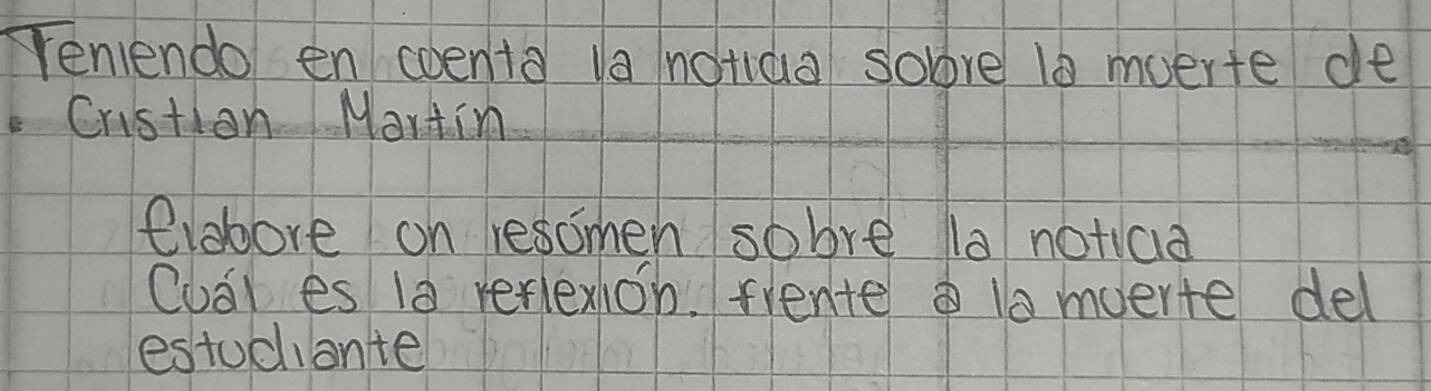 Teniendo en cuenta la noticia sobre la muerte de
. Cristian Martín
Elabore un resúmen sobre la noticia
Cuál es la reflexión. frente a la muerte del
estudiante